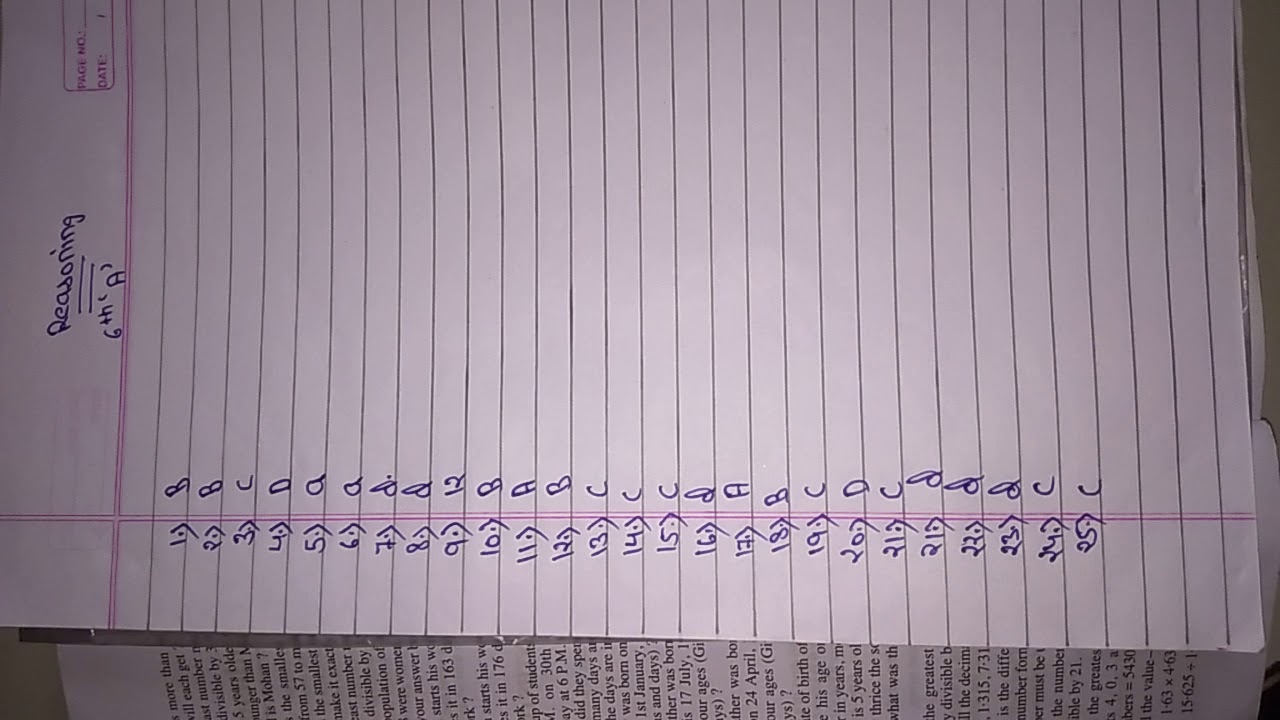 PAGE NO.:
DATE: /
Reasoning
6th 'A'
1.) B
2.) B
3.) C
4.) D
5.) a
6.) a
7.)
8.)
9.) 12
10.) B
11.) A
12.) B
13.) C
14.) C
15.) C
16.)
17.) A
18.) B
19.) C
20.) D
21.) C
21.)
22.)
23.)
24.) C
25.) C
s more than
vill each get
ast number
divisible by 3
5 years olde
unger than M
l is Mohan ?
s the smalles
from 57 to m
the smallest
make it exact
east number
divisible by
population of
were women
your answer
starts his wo
es it in 163 d
rk ?
starts his wo
es it in 176 d
rk ?
up of students
M. on 30th
ay at 6 P.M.
did they spen
many days a
he days are in
was born on
1st January,
s and days)
ther was born
is 17 July, 1
our ages (Gi
ays) ?
ther was bor
on 24 April,
our ages (Gi
ys) ?
te of birth of
e his age o
r in years, m
is 5 years of
thrice the s
what was th
the greatest
y divisible b
ll the decim
1·315, 7·31
is the diffe
number form
er must be
the number
ble by 21.
the greates
s 4, 0, 3 a
bers = 5430
the value—
1·63 × 4·63
15·625 ÷ 1